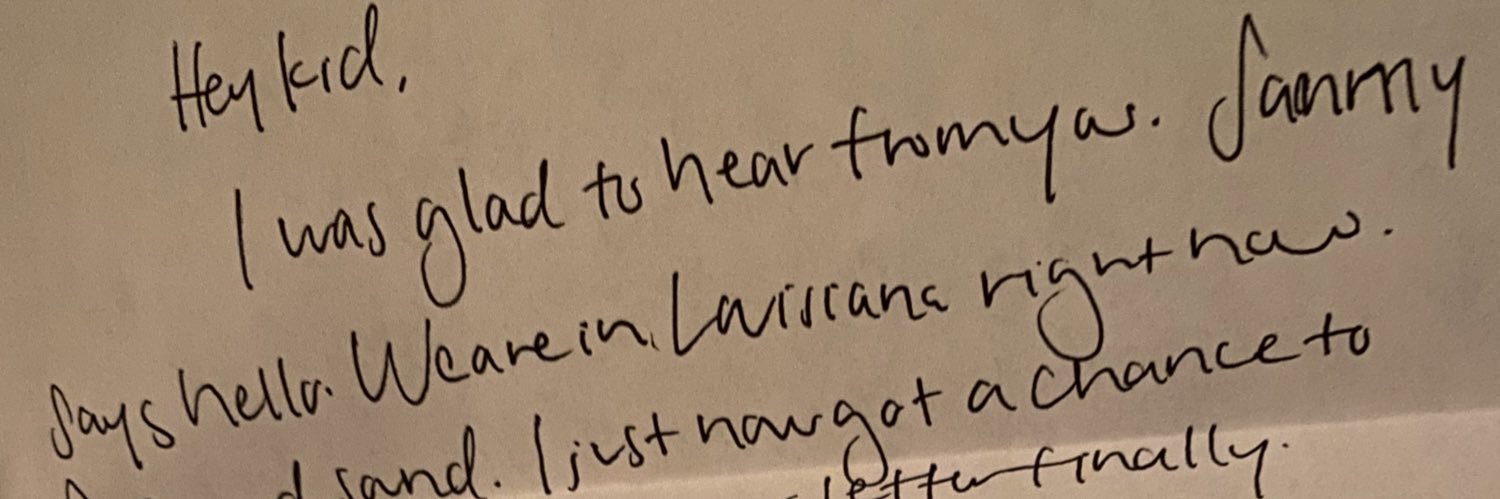 Hey kid,
I was glad to hear from you. Sammy
says hello. We are in Louisiana right now.
sand. I just now got a chance to
letter finally.